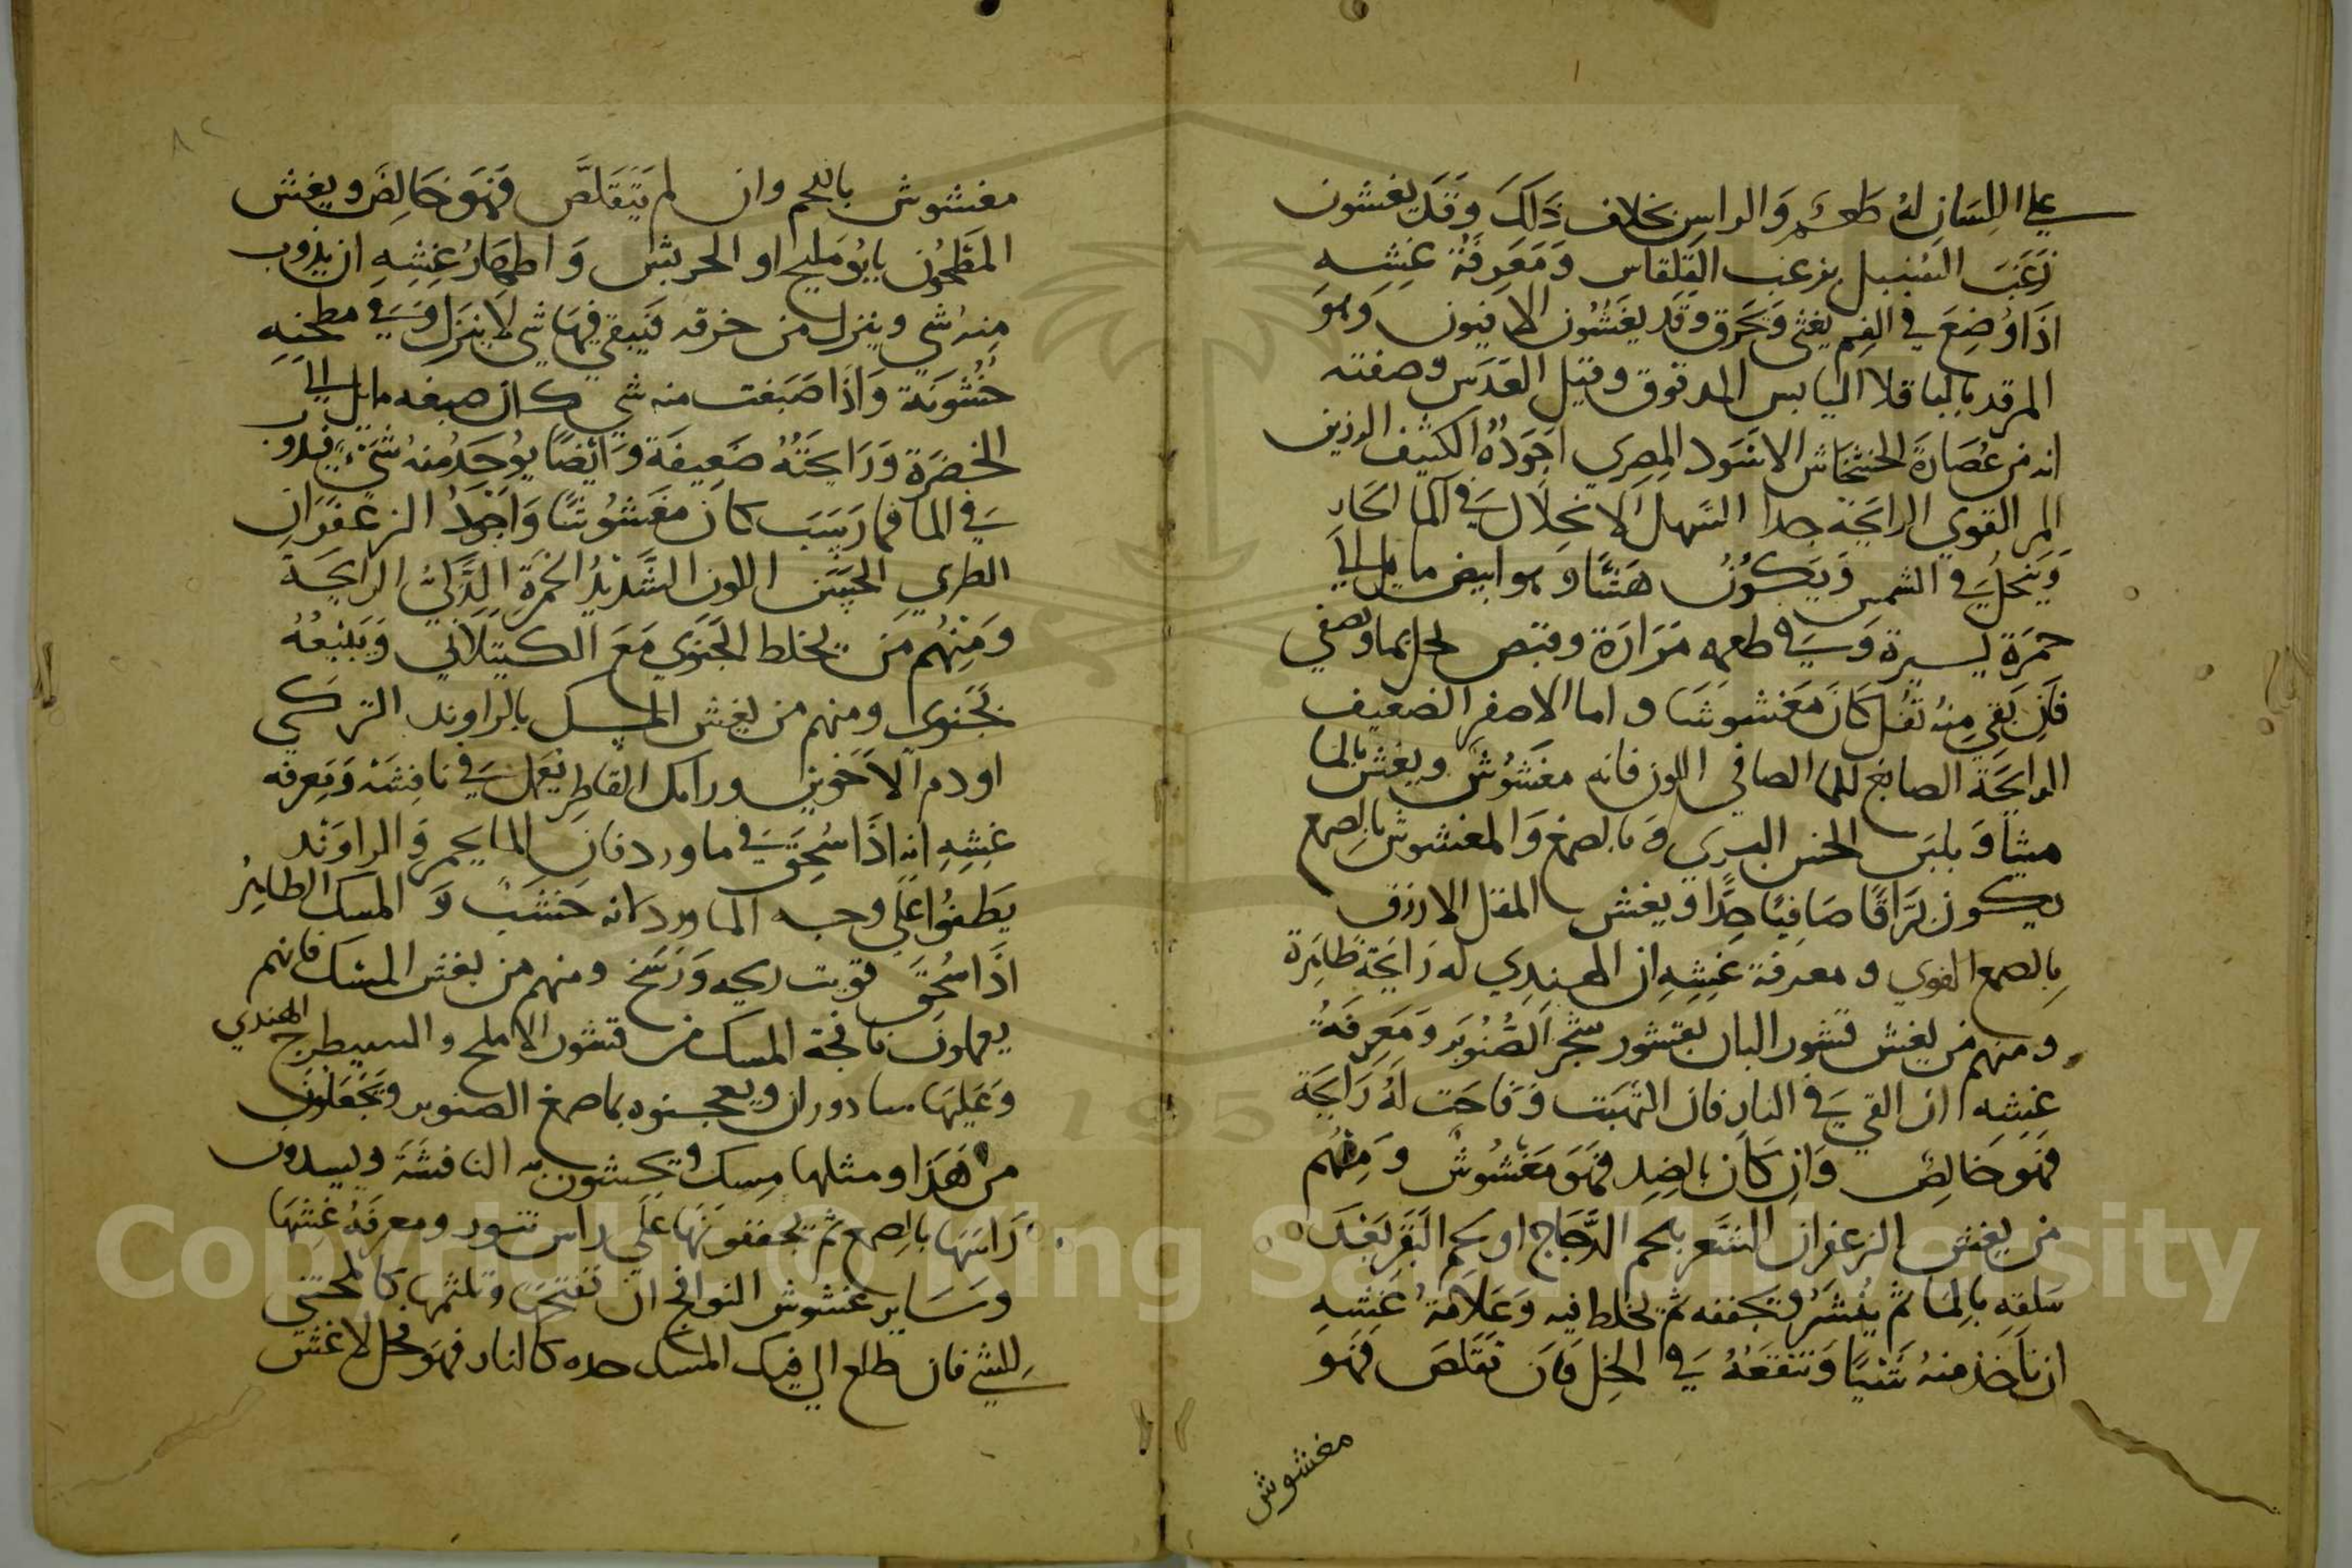 علي اللسان له طعم والراسن بخلاف ذلك وقد يغشون
زغب السنبل بزغب القلقاس ومعرفة غشه
اذا وضع في الفم يغثي ويحرق وقد يغشون الافيون وهو
المرقد بالباقلا اليابس المدقوق وقيل العدس وصفته
انه من عصارة الخشخاش الاسود المصري اجوده الكثيف الرزين
المر القوي الرايحة جدا السهل الانحلال في الما الحار
وينحل في الشمس ويكون هشا وهو ابيض مايل الي
حمرة يسيرة وفي طعمه مرارة وقبض يحل بما ويصفي
فان بقي منه ثفل كان مغشوشا واما الاصفر الضعيف
الرايحة الصابغ للما الصافي اللون فانه مغشوش ويغش بالما
ميثا وبلبن الخس البري وبالصمغ والمغشوش بالصمغ
يكون براقا صافيا جدا ويغش المقل الازرق
بالصمغ القوي ومعرفة غشه ان الهندي له رايحة ظاهرة
ومنهم من يغش قشور البان بقشور شجر الصنوبر ومعرفة
غشه ان القي في النار فان التهبت وفاحت له رايحة
فهو خالص وان كان بالضد فهو مغشوش ومنهم
من يغش الزعفران الشعر بلحم الدجاج او لحم البقر بعد
سلقه بالما ثم ينشر ويجففه ثم يخلط فيه وعلامة غشه
ان تاخذ منه شيا وتنقعه في الخل فان تقلص فهو
مغشوش
مغشوش باللحم وان لم يتقلص فهو خالص ويغش
المطحون او الحريش واظهار غشه ان يذوب
منه شي وينزل من خرقه فيبقي فيها شي لا ينزل وفي مطحنه
خشونة واذا صبغت منه شي كان صبغه مايل الي
الخضرة ورايحته ضعيفة وايضا يوجد منه شي فيذوب
في الما فما رسب كان مغشوشا واجود الزعفران
الطري الحسن اللون الشديد الحمرة الذكي الرايحة
ومنهم من يخلط الجنوي مع الكيتلاني ويبيعه
بجنوي ومنهم من يغش المسك بالراوند التركي
او دم الاخوين ورامك القاطر يعمل في نافشة ويعرفه
غشه انه اذا سحق في ما ورد فان الما يحمر والراوند
يطفوا علي وجه الماورد لانه خشب والمسك الطاهر
اذا سحق قويت ريحه ورسخ ومنهم من يغش المسك فانهم
يعملون نافجة المسك من قشور الاملج والسيطرج الهندي
وعليها سادوران ويعجنوه بما صمغ الصنوبر ويجعلون
من هذا ومثلها مسك ويحشون به النافشة ويسدون
راسها بالصمغ ثم يجففونها علي راس تنور ومعرفة غشها
وساير غشوش النوافج ان تفتحها وتلثمها كالمحتسي
للشي فان طلع الي فيك المسك حده كالنار فهو فحل لا غش